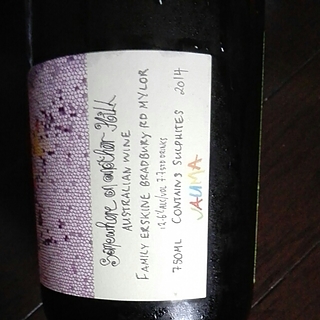 Somewhere on another Hill
AUSTRALIAN WINE
FAMILY ERSKINE BRADBURY RD MYLOR
12.6% ALC/VOL 7.7 STD DRINKS
750ML CONTAINS SULPHITES 2014
JAUMA